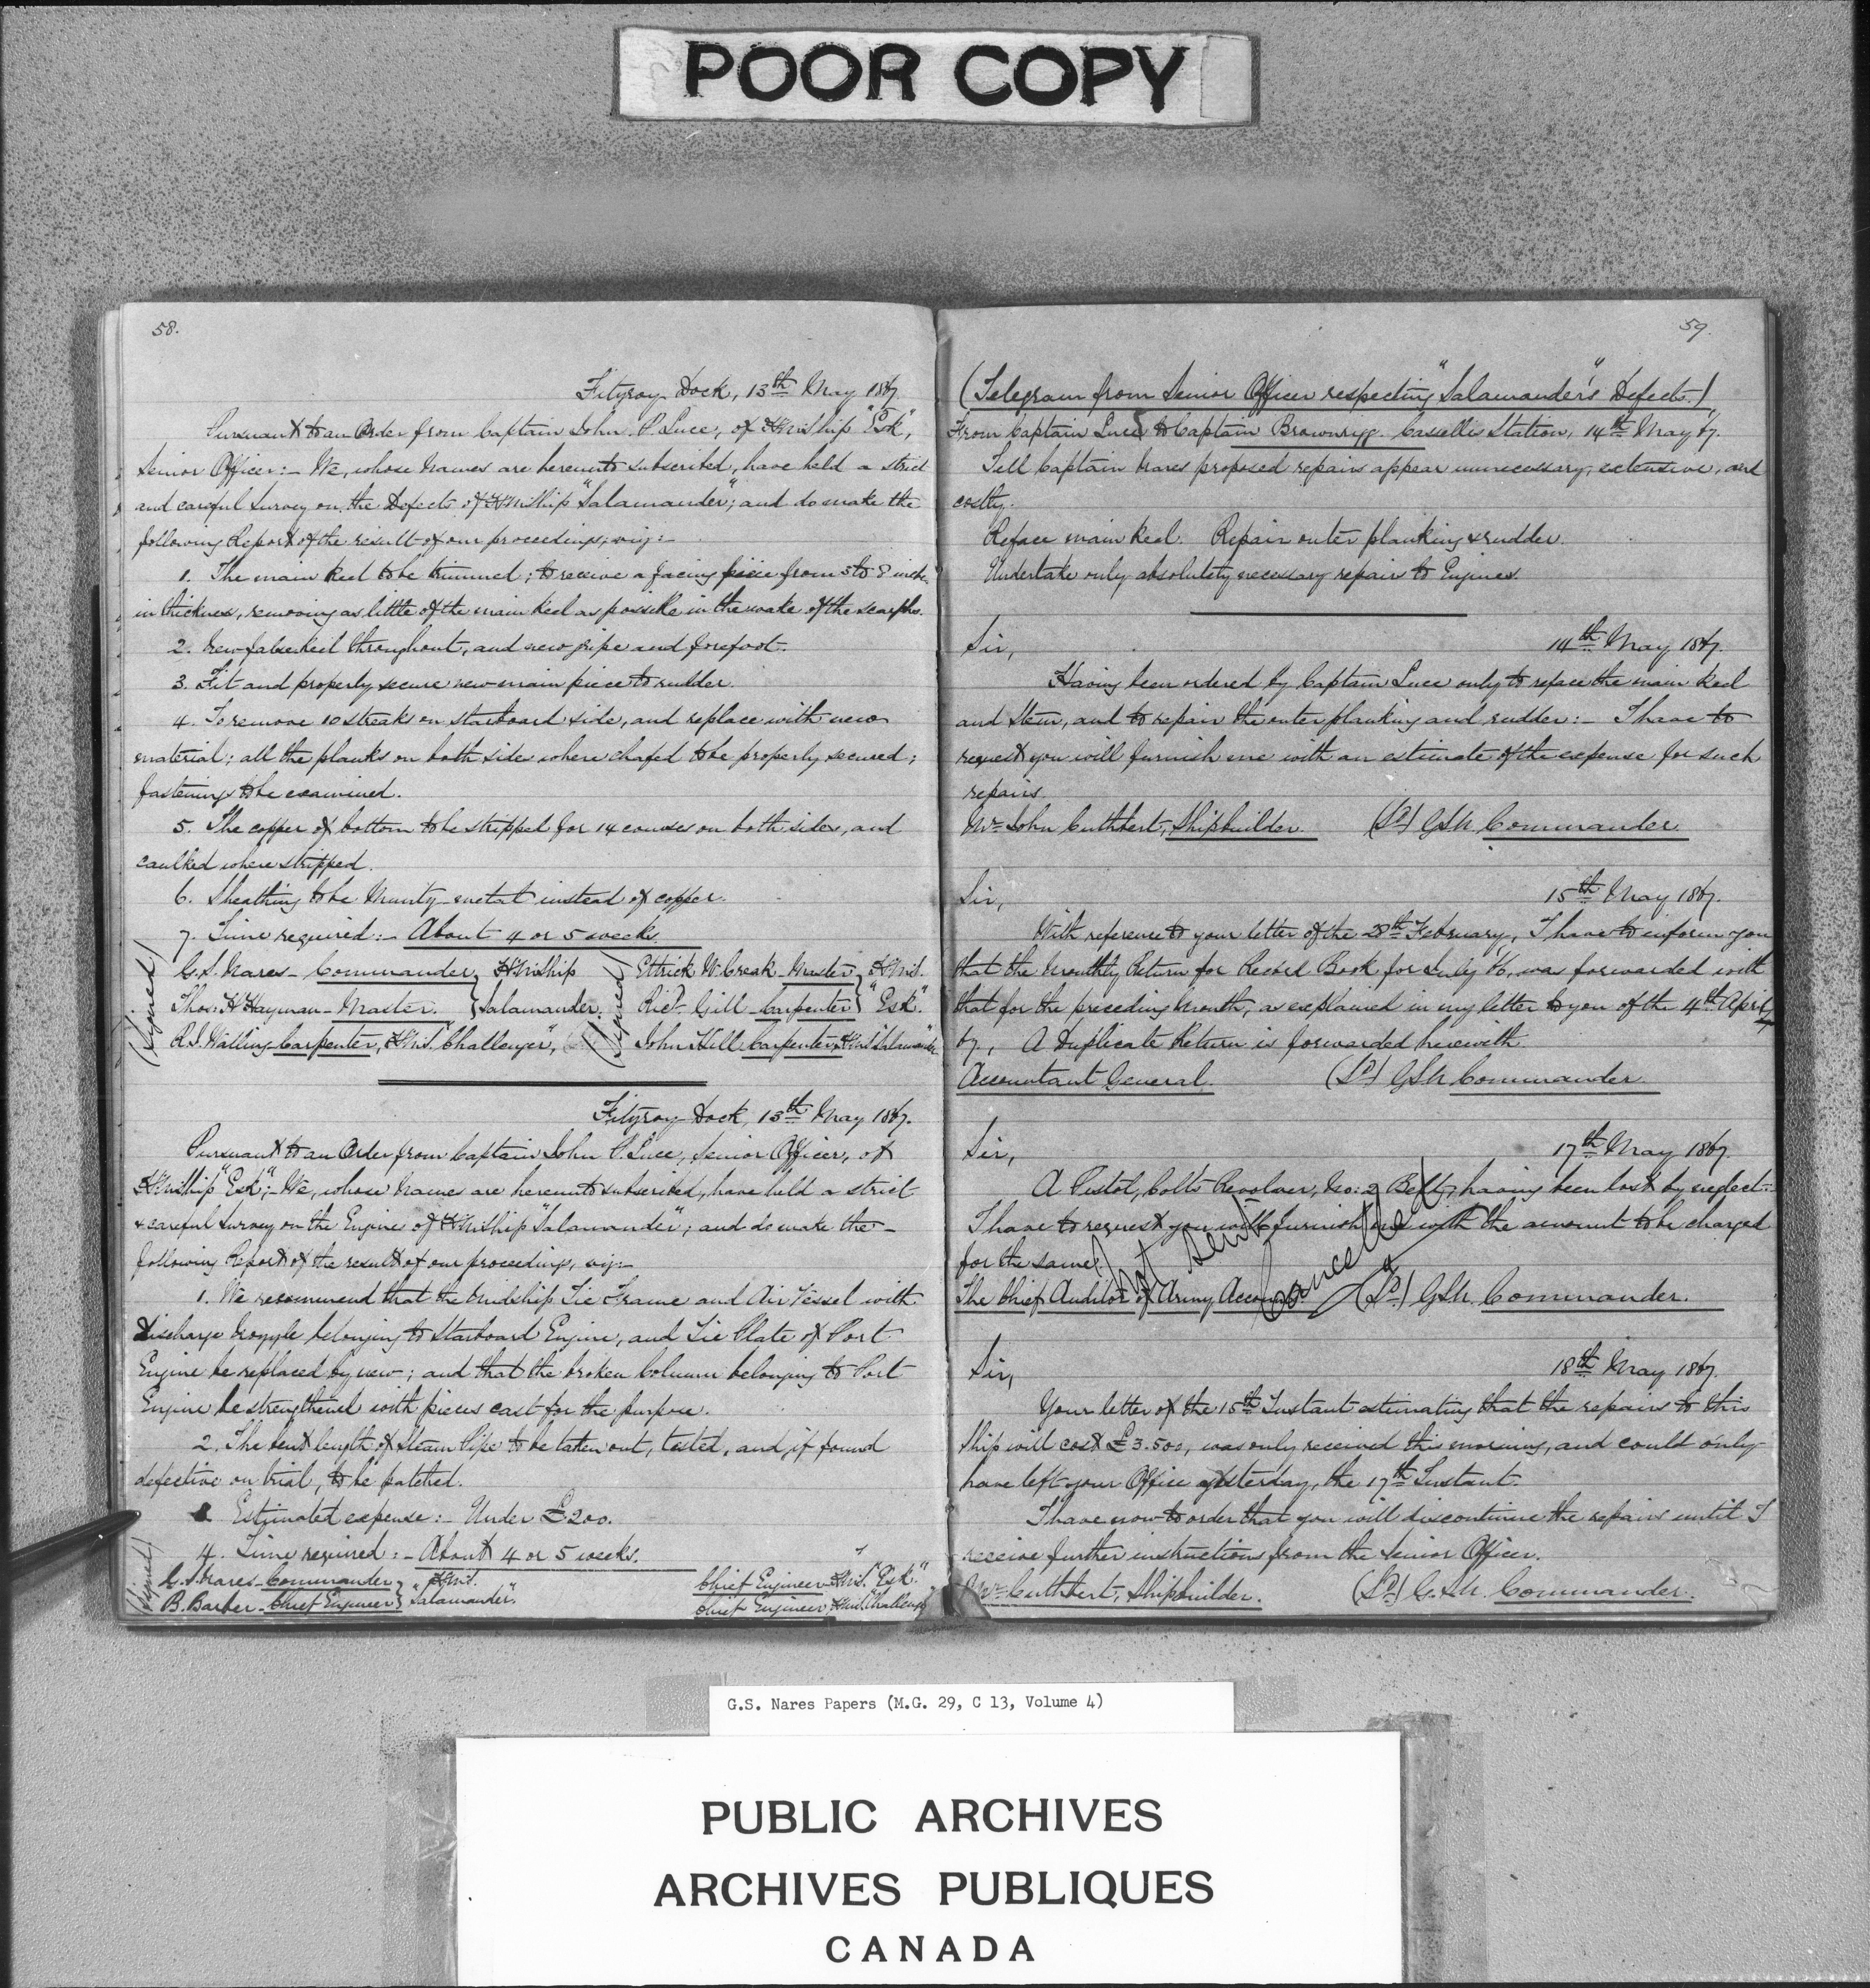 POOR COPY
58.
Fitzroy Dock, 13th May 1867.
Pursuant to an Order from Captain John P. Luce, of H.M. Ship "Esk",
Senior Officer:- We, whose Names are hereunto subscribed, have held a strict
and careful Survey on the Defects of H.M. Ship "Salamander"; and do make the
following Report of the result of our proceedings, viz:-
1. The main keel to be trimmed; to receive a facing piece from 5 to 8 inches
in thickness, removing as little of the main keel as possible in the wake of the scarphs.
2. New false keel throughout, and new gripe and forefoot.
3. Fit and properly secure new main piece to rudder.
4. To remove 10 streaks on starboard side, and replace with new
material; all the planks on both sides where chafed to be properly secured;
fastenings to be examined.
5. The copper of bottom to be stripped for 14 courses on both sides, and
caulked where stripped.
6. Sheathing to be Muntz-metal instead of copper.
7. Time required:- About 4 or 5 weeks.
(Signed) G.S. Nares - Commander } H.M. Ship (Signed) Ettrick W. Creak - Master } H.M.S.
Thos. H. Hayman - Master. } Salamander. Richd. Gill - Carpenter } "Esk".
R.S. Walling - Carpenter, H.M.S. "Challenger", John Hill. Carpenter, H.M.S. "Salamander"
Fitzroy Dock, 13th May 1867.
Pursuant to an Order from Captain John P. Luce, Senior Officer, of
H.M. Ship "Esk";- We, whose Names are hereunto subscribed, have held a strict
& careful Survey on the Engines of H.M. Ship "Salamander"; and do make the -
following Report of the result of our proceedings, viz:-
1. We recommend that the Midship Tie Frame and Air Vessel with
Discharge Noggle belonging to Starboard Engine, and Tie Plate of Port
Engine be replaced by new; and that the broken Column belonging to Port
Engine be strengthened with pieces cast for the purpose.
2. The bent length of Steam Pipe to be taken out, tested, and if found
defective on trial, to be patched.
Estimated expense:- Under £200.
4. Time required:- About 4 or 5 weeks.
(Signed) G.S. Nares - Commander } H.M.S. Chief Engineer H.M.S. "Esk".
B. Barber - Chief Engineer } "Salamander". Chief Engineer, H.M.S. "Challenger"
59.
(Telegram from Senior Officer respecting "Salamander's" Defects.)
From Captain Luce to Captain Brownrigg. Cassellis Station, 14th May 67.
Tell Captain Nares proposed repairs appear unnecessary, extensive, and
costly.
Reface main keel. Repair outer planking & rudder.
Undertake only absolutely necessary repairs to Engines.
Sir, 14th May 1867.
Having been ordered by Captain Luce only to reface the main keel
and Stem, and to repair the outer planking and rudder:- I have to
request you will furnish me with an estimate of the expense for such
repairs.
Mr. John Cuthbert, Shipbuilder. (Sd) GSN. Commander.
Sir, 15th May 1867.
With reference to your letter of the 28th February, I have to inform you
that the Monthly Return for Record Book for July 66, was forwarded with
that for the preceding Month, as explained in my letter to you of the 4th April,
67, A Duplicate Return is forwarded herewith.
Accountant General. (Sd) GSN Commander.
Sir, 17th May 1867.
A Pistol, Colt's Revolver, No: 2 Belt, having been lost by neglect:-
I have to request you will furnish me with the amount to be charged
for the same.
Not sent Cancelled
The Chief Auditor of Army Accounts (Sd) GSN. Commander.
Sir, 18th May 1867.
Your letter of the 15th Instant estimating that the repairs to this
Ship will cost £3.500, was only received this morning, and could only
have left your Office yesterday, the 17th Instant.
I have now to order that you will discontinue the repairs until I
receive further instructions from the Senior Officer.
Mr. Cuthbert, Shipbuilder. (Sd) G.S.N. Commander.
G.S. Nares Papers (M.G. 29, C 13, Volume 4)
PUBLIC ARCHIVES
ARCHIVES PUBLIQUES
CANADA